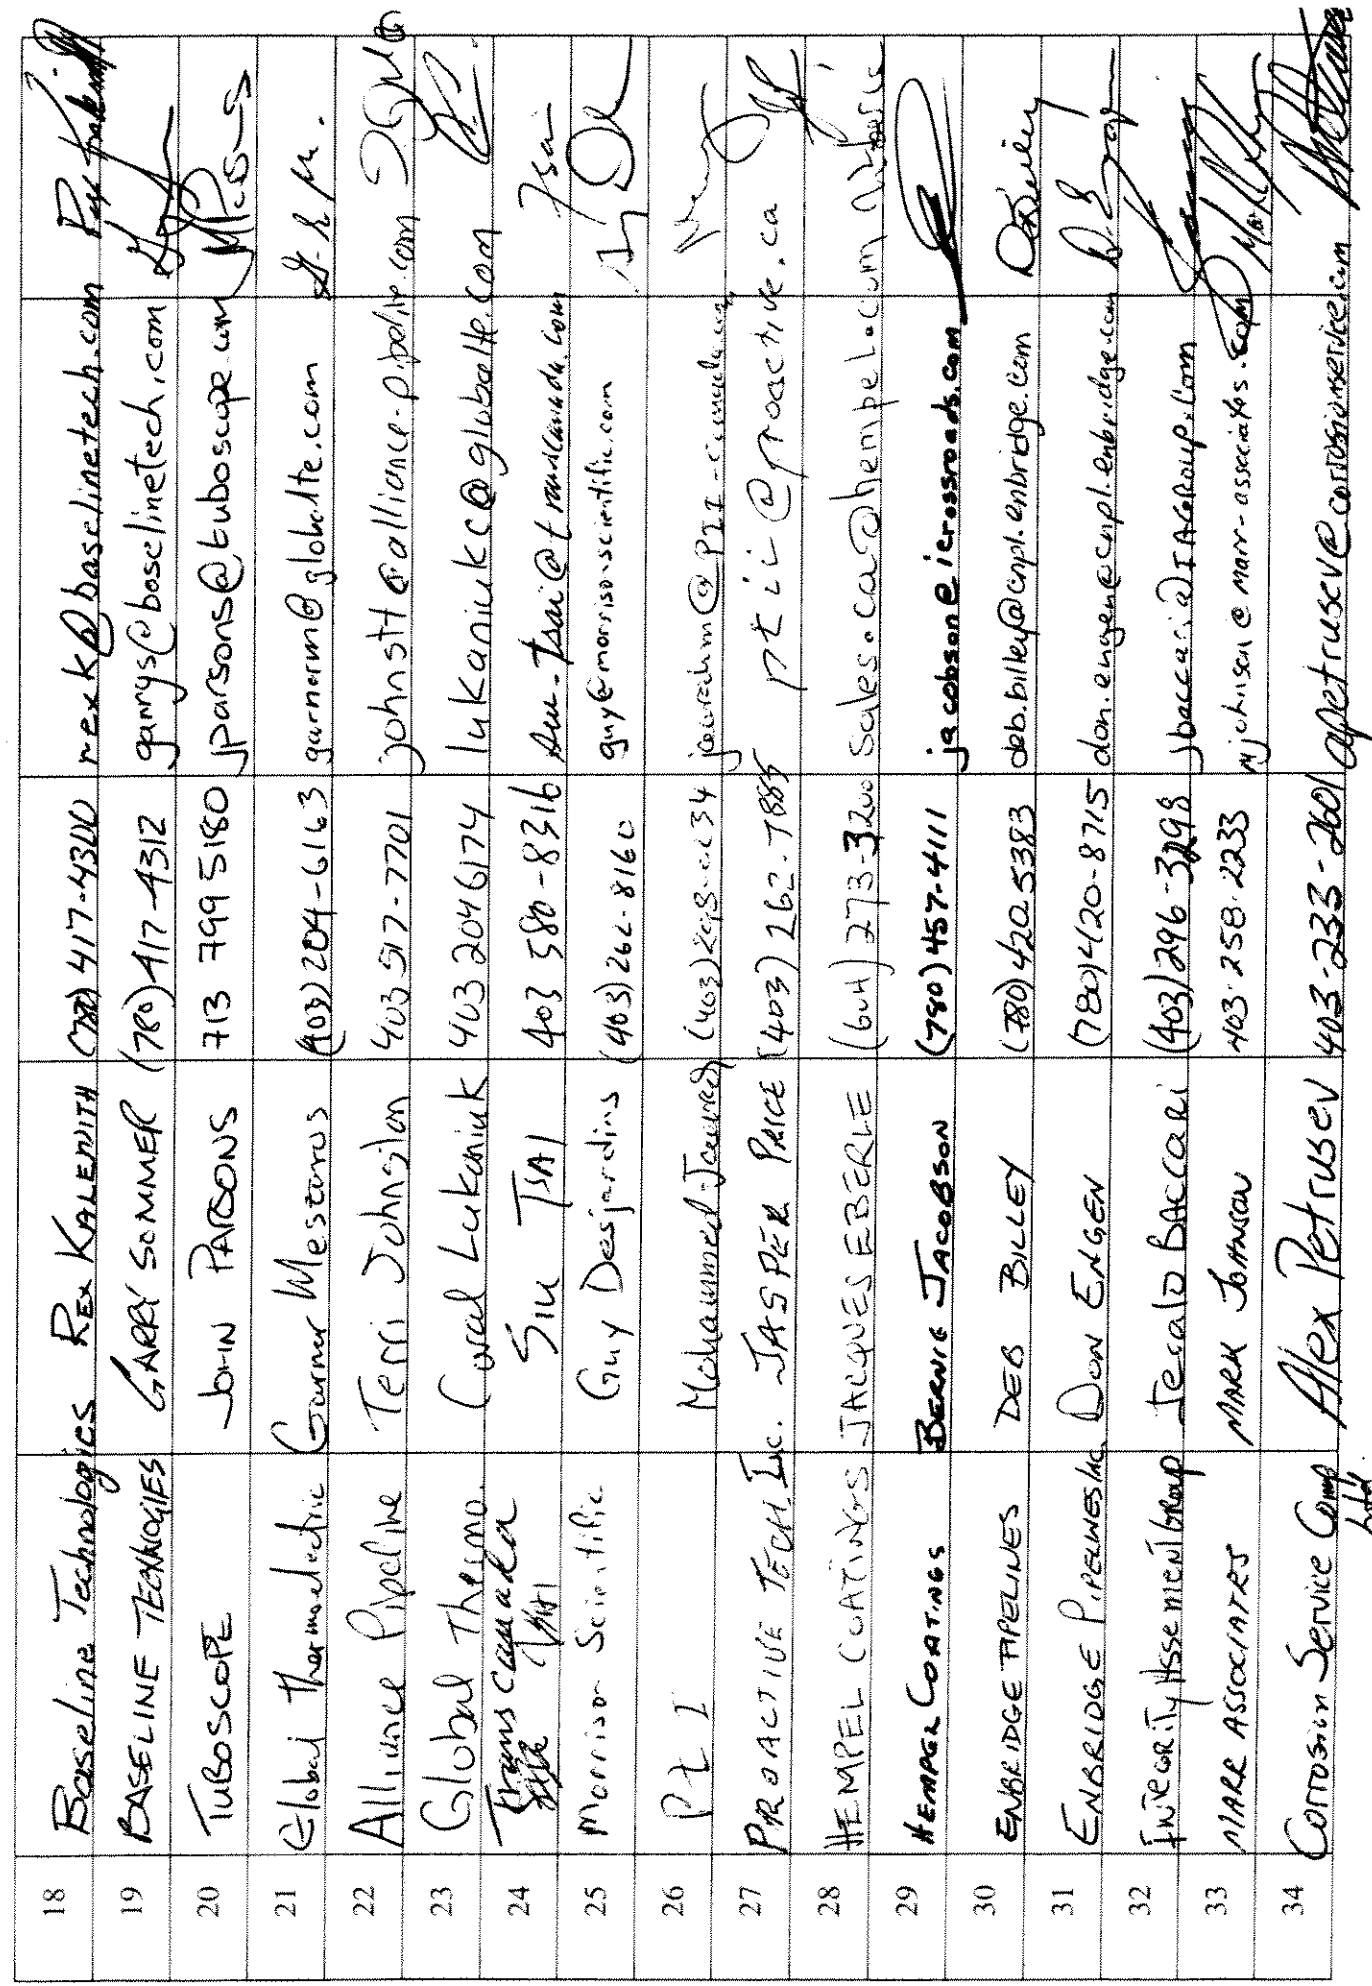 18 Baseline Technologies Rex Kalenith (780) 417-4300 rexk@baselinetech.com
19 BASELINE TECHNOLOGIES GARRY SOMMER (780)-417-4312 garrys@baselinetech.com
20 TUBOSCOPE JOHN PARSONS 713 799 5180 jparsons@tuboscope.com
21 Global Thermoelectric Garner Meszaros (403) 204-6163 garnerm@globalte.com
22 Alliance Pipeline Terri Johnston 403 517-7701 johnstt@alliance-pipeline.com
23 Global Thermo. Coral Lukaniuk 403 204 6174 lukaniukc@globalte.com
24 Trans Canada SIU TSAI 403 580-8316 siu_tsai@transcanada.com
25 Morrison Scientific Guy Desjardins (403) 262-8160 guy@morrison-scientific.com
26 PII Mohammed
27 PROACTIVE TECH Inc. JASPER PRICE (403) 262-7885 ptii@proactive.ca
28 HEMPEL COATINGS JACQUES EBERLE (604) 273-3200 sales.ca@hempel.com
29 HEMPEL COATINGS BERNIE JACOBSON (780) 457-4111 jacobson@icrossroads.com
30 ENBRIDGE PIPELINES DEB BILLEY (780) 420 5383 deb.billey@cnpl.enbridge.com
31 ENBRIDGE PIPELINES Inc DON ENGEN (780) 420-8715 don.engen@cnpl.enbridge.com
32 INTEGRITY Assessment Group Jecalo BACCARI (403) 296-3298 jbaccari@IAGROUP.Com
33 MARR ASSOCIATES MARK JOHNSON 403-258-2233 mjohnson@marr-associates.com
34 Corrosion Service Comp Alex Petrusev 403-233-2601 apetrusev@corrosionservice.com